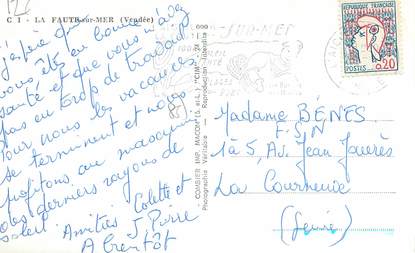 122
C I - LA FAUTE-sur-MER (Vendée)
J'espère q
vous êtes en bonne
santé et que vous n'avez
pas eu trop de travail
Pour nous les vacances
se terminent et nous
profitons au maximum
des derniers rayons de
soleil.
Amitiés Colette et
J. Pierre
A bientôt
COMBIER IMP. MACON (S.-et-L.) "CIM"
Photographie Véritable - Reproduction Interdite
SUR-MER
REPUBLIQUE FRANÇAISE
POSTES 0,20
Madame BÉNES
1a 5, Av. Jean Jaurès
La Courneuve
(Seine)